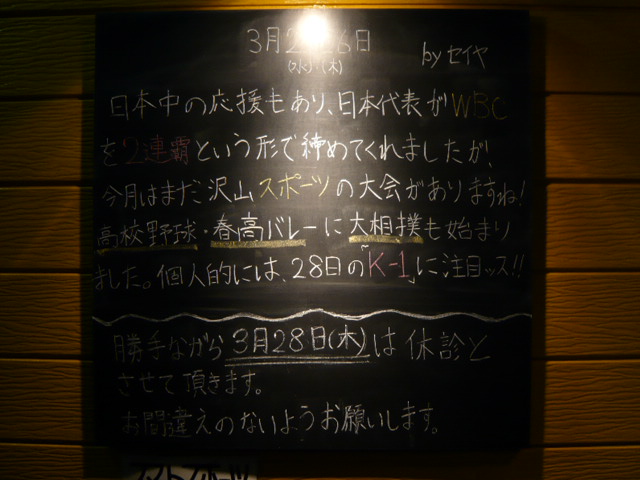 3月2 6日 by セイヤ
(水)(木)
日本中の応援もあり、日本代表がWBC
を2連覇という形で締めてくれましたが、
今月はまだ沢山スポーツの大会がありますね!
高校野球・春高バレーに大相撲も始まり
ました。個人的には、28日の「K-1」に注目ッス!!
勝手ながら3月28日(木)は休診と
させて頂きます。
お間違えのないようお願いします。